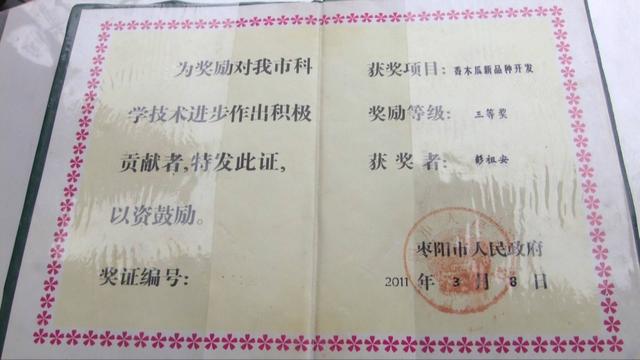 为奖励对我市科
学技术进步作出积极
贡献者,特发此证,
以资鼓励。
奖证编号:
获奖项目:香木瓜新品种开发
奖励等级:三等奖
获奖者:彭祖安
枣阳市人民政府
2011年3月8日